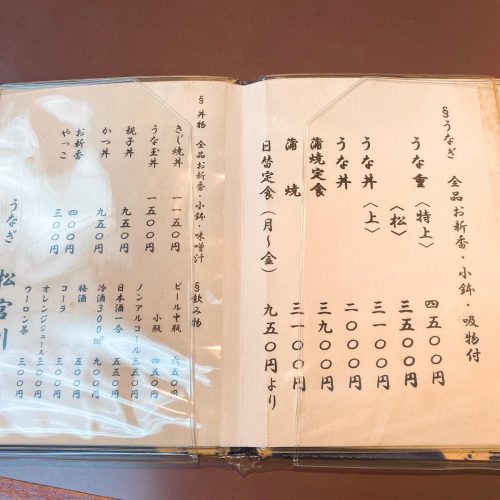 §うなぎ 全品お新香・小鉢・吸物付
うな重〈特上〉 四五〇〇円
〈松〉 三五〇〇円
うな丼〈上〉 三一〇〇円
うな丼 二〇〇〇円
蒲焼定食 三九〇〇円
蒲焼 三一〇〇円
日替定食(月〜金) 九五〇円より
§丼物 全品お新香・小鉢・味噌汁
きじ焼丼 一一五〇円
うな玉丼 一五〇〇円
親子丼 九五〇円
かつ丼 九五〇円
お新香 四〇〇円
やっこ 三〇〇円
§飲み物
ビール中瓶 六五〇円
小瓶 四五〇円
ノンアルコール 三五〇円
日本酒一合 五五〇円
冷酒300ml 九〇〇円
梅酒 五五〇円
コーラ 三〇〇円
オレンジジュース 三〇〇円
ウーロン茶 三〇〇円
うなぎ 松宮川